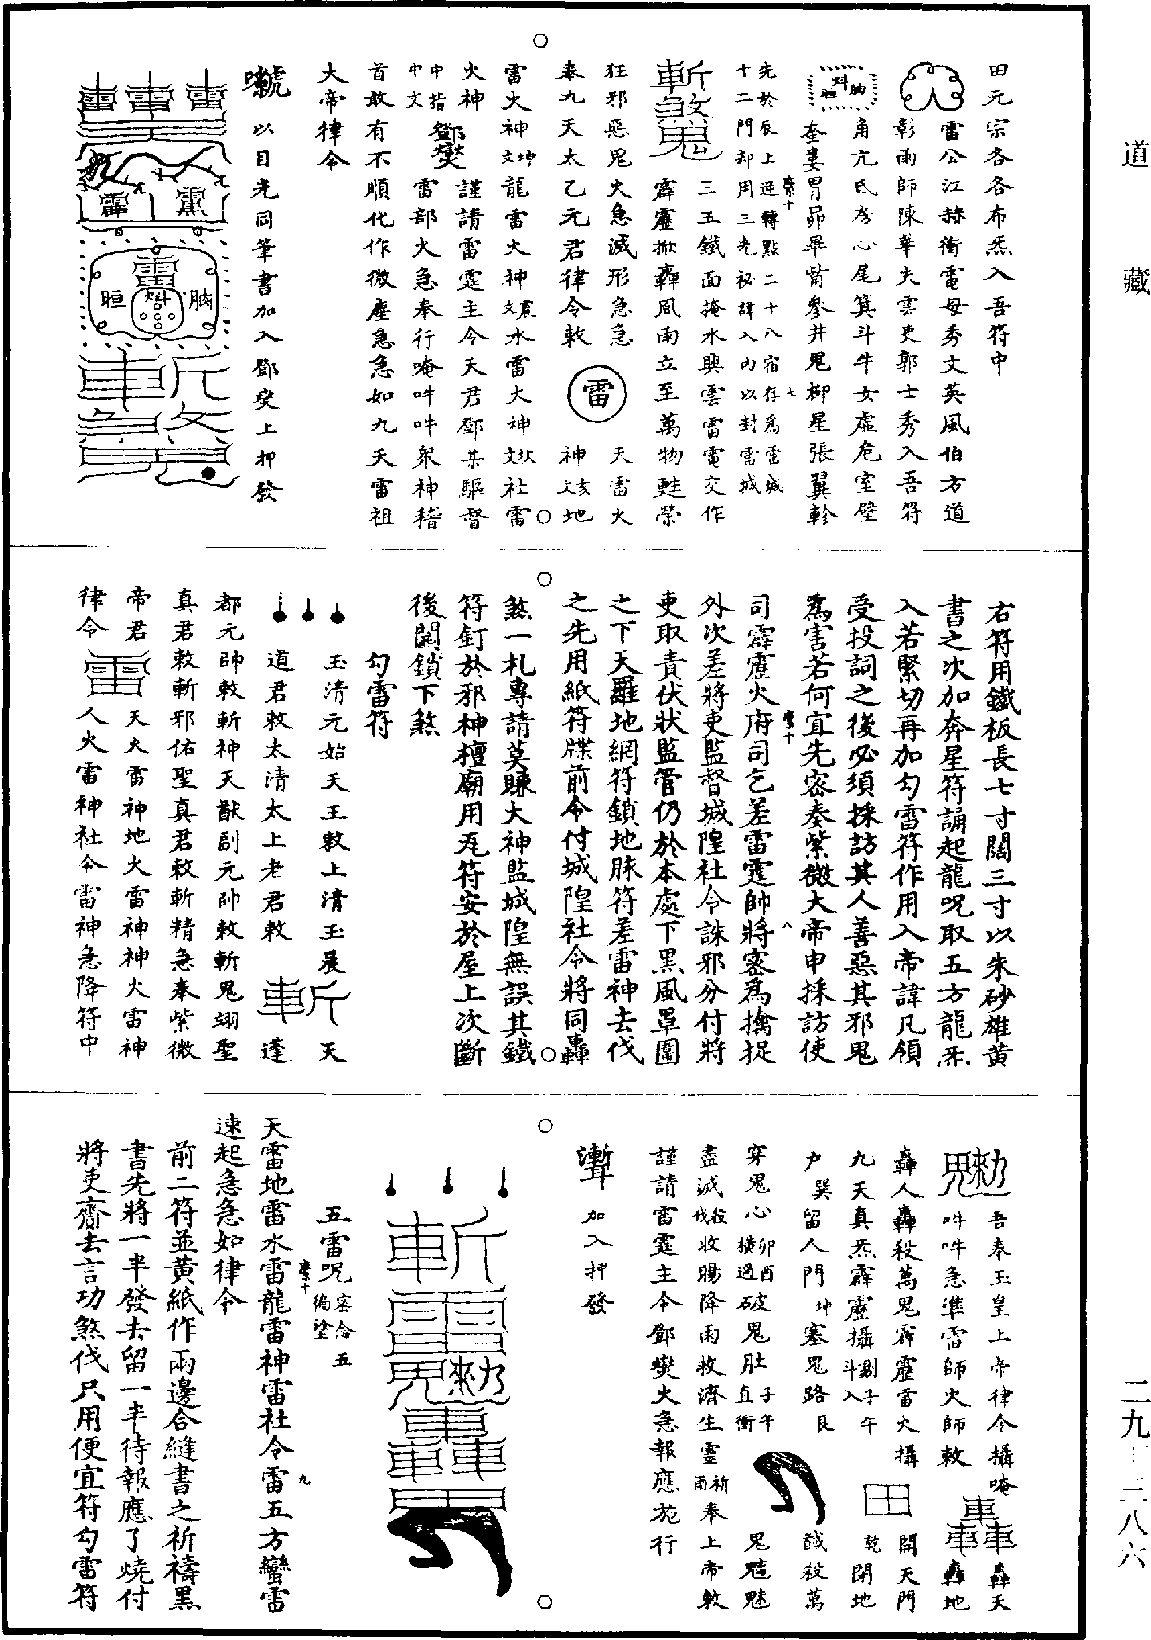 道藏
二九—三八六
田元宗各各布炁入吾符中
雷公江赫衝電母秀文英風伯方道
彰雨師陳華夫雲吏郭士秀入吾符
角亢氐房心尾箕斗牛女虛危室壁
奎婁胃昴畢觜參井鬼柳星張翼軫
先於辰上逆轉點二十八宿存為雷城
十二門却用三光祕諱入內以封雷城
斬煞鬼 三五鐵面掩水興雲雷電交作
霹靂掀轟風雨立至萬物鮭榮
狂邪惡鬼火急滅形急急
奉九天太乙元君律令敕 雷 天雷火
神 地
雷火神 龍雷火神 水雷火神 社雷
火神 謹請雷霆主令天君鄧某驅督
鄧燮 雷部火急奉行唵吽吽眾神稽
首敢有不順化作微塵急急如九天雷祖
大帝律令
以目光同筆書加入鄧燮上押發
右符用鐵板長七寸闊三寸以朱砂雄黃
書之次加奔星符誦起龍呪取五方龍炁
入若緊切再加勾雷符作用入帝諱凡領
受投詞之後必須採訪其人善惡其邪鬼
為害若何宜先密奏紫微大帝申採訪使
司霹靂火府司乞差雷霆帥將密為擒捉
外次差將吏監督城隍社令誅邪分付將
吏取責伏狀監管仍於本處下黑風罩圍
之下天羅地網符鎖地脉符差雷神去伐
之先用紙符牒前令付城隍社令將同轟
煞一札專請莫賺大神監城隍無誤其鐵
符釘於邪神檀廟用瓦符安於屋上次斷
後關鎖下煞
勾雷符
玉清元始天王敕上清玉晨
道君敕太清太上老君敕 斬 天蓬
都元帥敕斬神天猷副元帥敕斬鬼翊聖
真君敕斬邪佑聖真君敕斬精急奉紫微
帝君 天火雷神地火雷神神火雷神
律令 雷 人火雷神社令雷神急降符中
吾奉玉皇上帝律令攝唵
吽吽急準雷師火師敕 轟天
轟地
轟人轟殺萬鬼霹靂雷火攝 開天門
九天真炁霹靂攝 閉地
戶巽留人門坤塞鬼路艮 田 乾 馘殺萬
穿鬼心 卯酉橫過 破鬼肚 子午直衝 鬼魅
盡滅 收暘降雨救濟生靈 祈雨 奉上帝敕
謹請雷霆主令鄧燮火急報應施行
加入押發
五雷呪 密念五
天雷地雷水雷龍雷神雷社令雷五方蠻雷
速起急急如律令
前二符並黃紙作兩邊合縫書之祈禱黑
書先將一半發去留一半待報應了燒付
將吏齋去言功煞伐只用便宜符勾雷符